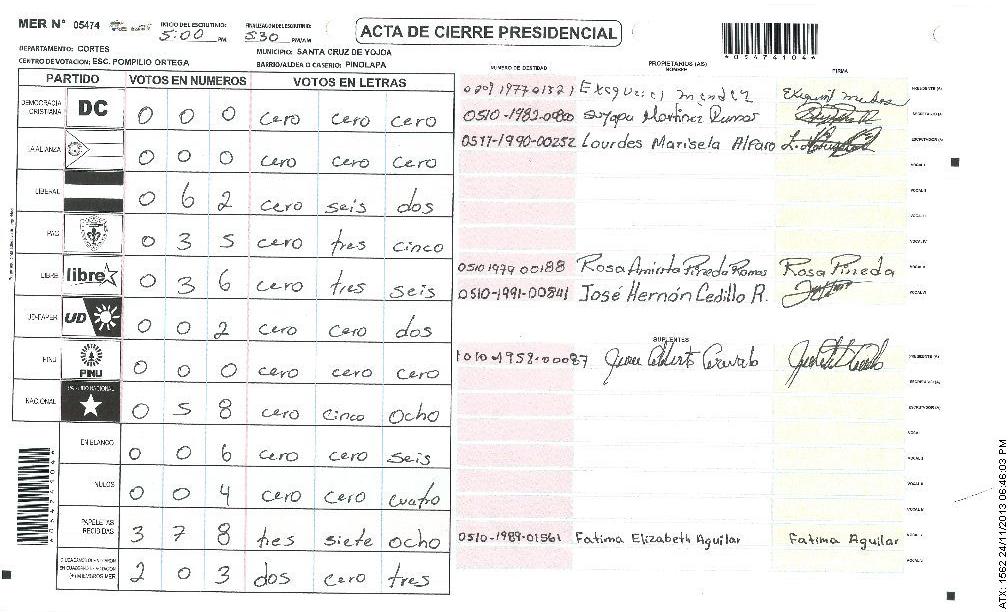 MER N° 05474 INICIO DEL ESCRUTINIO: 5:00 PM FINALIZACION DEL ESCRUTINIO: 5:30 PM/AM ACTA DE CIERRE PRESIDENCIAL
DEPARTAMENTO: CORTES MUNICIPIO: SANTA CRUZ DE YOJOA
CENTRO DE VOTACION: ESC. POMPILIO ORTEGA BARRIO/ALDEA O CASERIO: PINOLAPA
NUMERO DE IDENTIDAD PROPIETARIOS (AS) NOMBRE FIRMA
PARTIDO VOTOS EN NUMEROS VOTOS EN LETRAS
DEMOCRACIA CRISTIANA DC 0 0 0 cero cero cero
LA ALIANZA 0 0 0 cero cero cero
LIBERAL 0 6 2 cero seis dos
PAC 0 3 5 cero tres cinco
LIBRE libre 0 3 6 cero tres seis
UD-FAPER UD 0 0 2 cero cero dos
PINU PINU 0 0 0 cero cero cero
NACIONAL PARTIDO NACIONAL 0 5 8 cero cinco ocho
EN BLANCO 0 0 6 cero cero seis
NULOS 0 0 4 cero cero cuatro
PAPELETAS RECIBIDAS 3 7 8 tres siete ocho
(+) MIEMBROS MER 2 0 3 dos cero tres
Exequiel mendez PRESIDENTE (A)
0510-1982-0980 Martinez SECRETARIO (A)
0511-1990-00252 Lourdes Marisela Alfaro ESCRUTADOR (A)
VOCAL I
VOCAL II
VOCAL III
VOCAL IV
0510 1979 00188 Rosa Aminta Pineda Ramos Rosa Pineda VOCAL V
0510-1991-00841 José Hernán Cedillo R. VOCAL VI
SUPLENTES
1010-1958-00087 PRESIDENTE (A)
SECRETARIO (A)
ESCRUTADOR (A)
VOCAL I
VOCAL II
VOCAL III
VOCAL IV
0510-1989-01561 Fatima Elizabeth Aguilar Fatima Aguilar VOCAL V
VOCAL VI
ATX: 1562 24/11/2013 06:46:03 PM